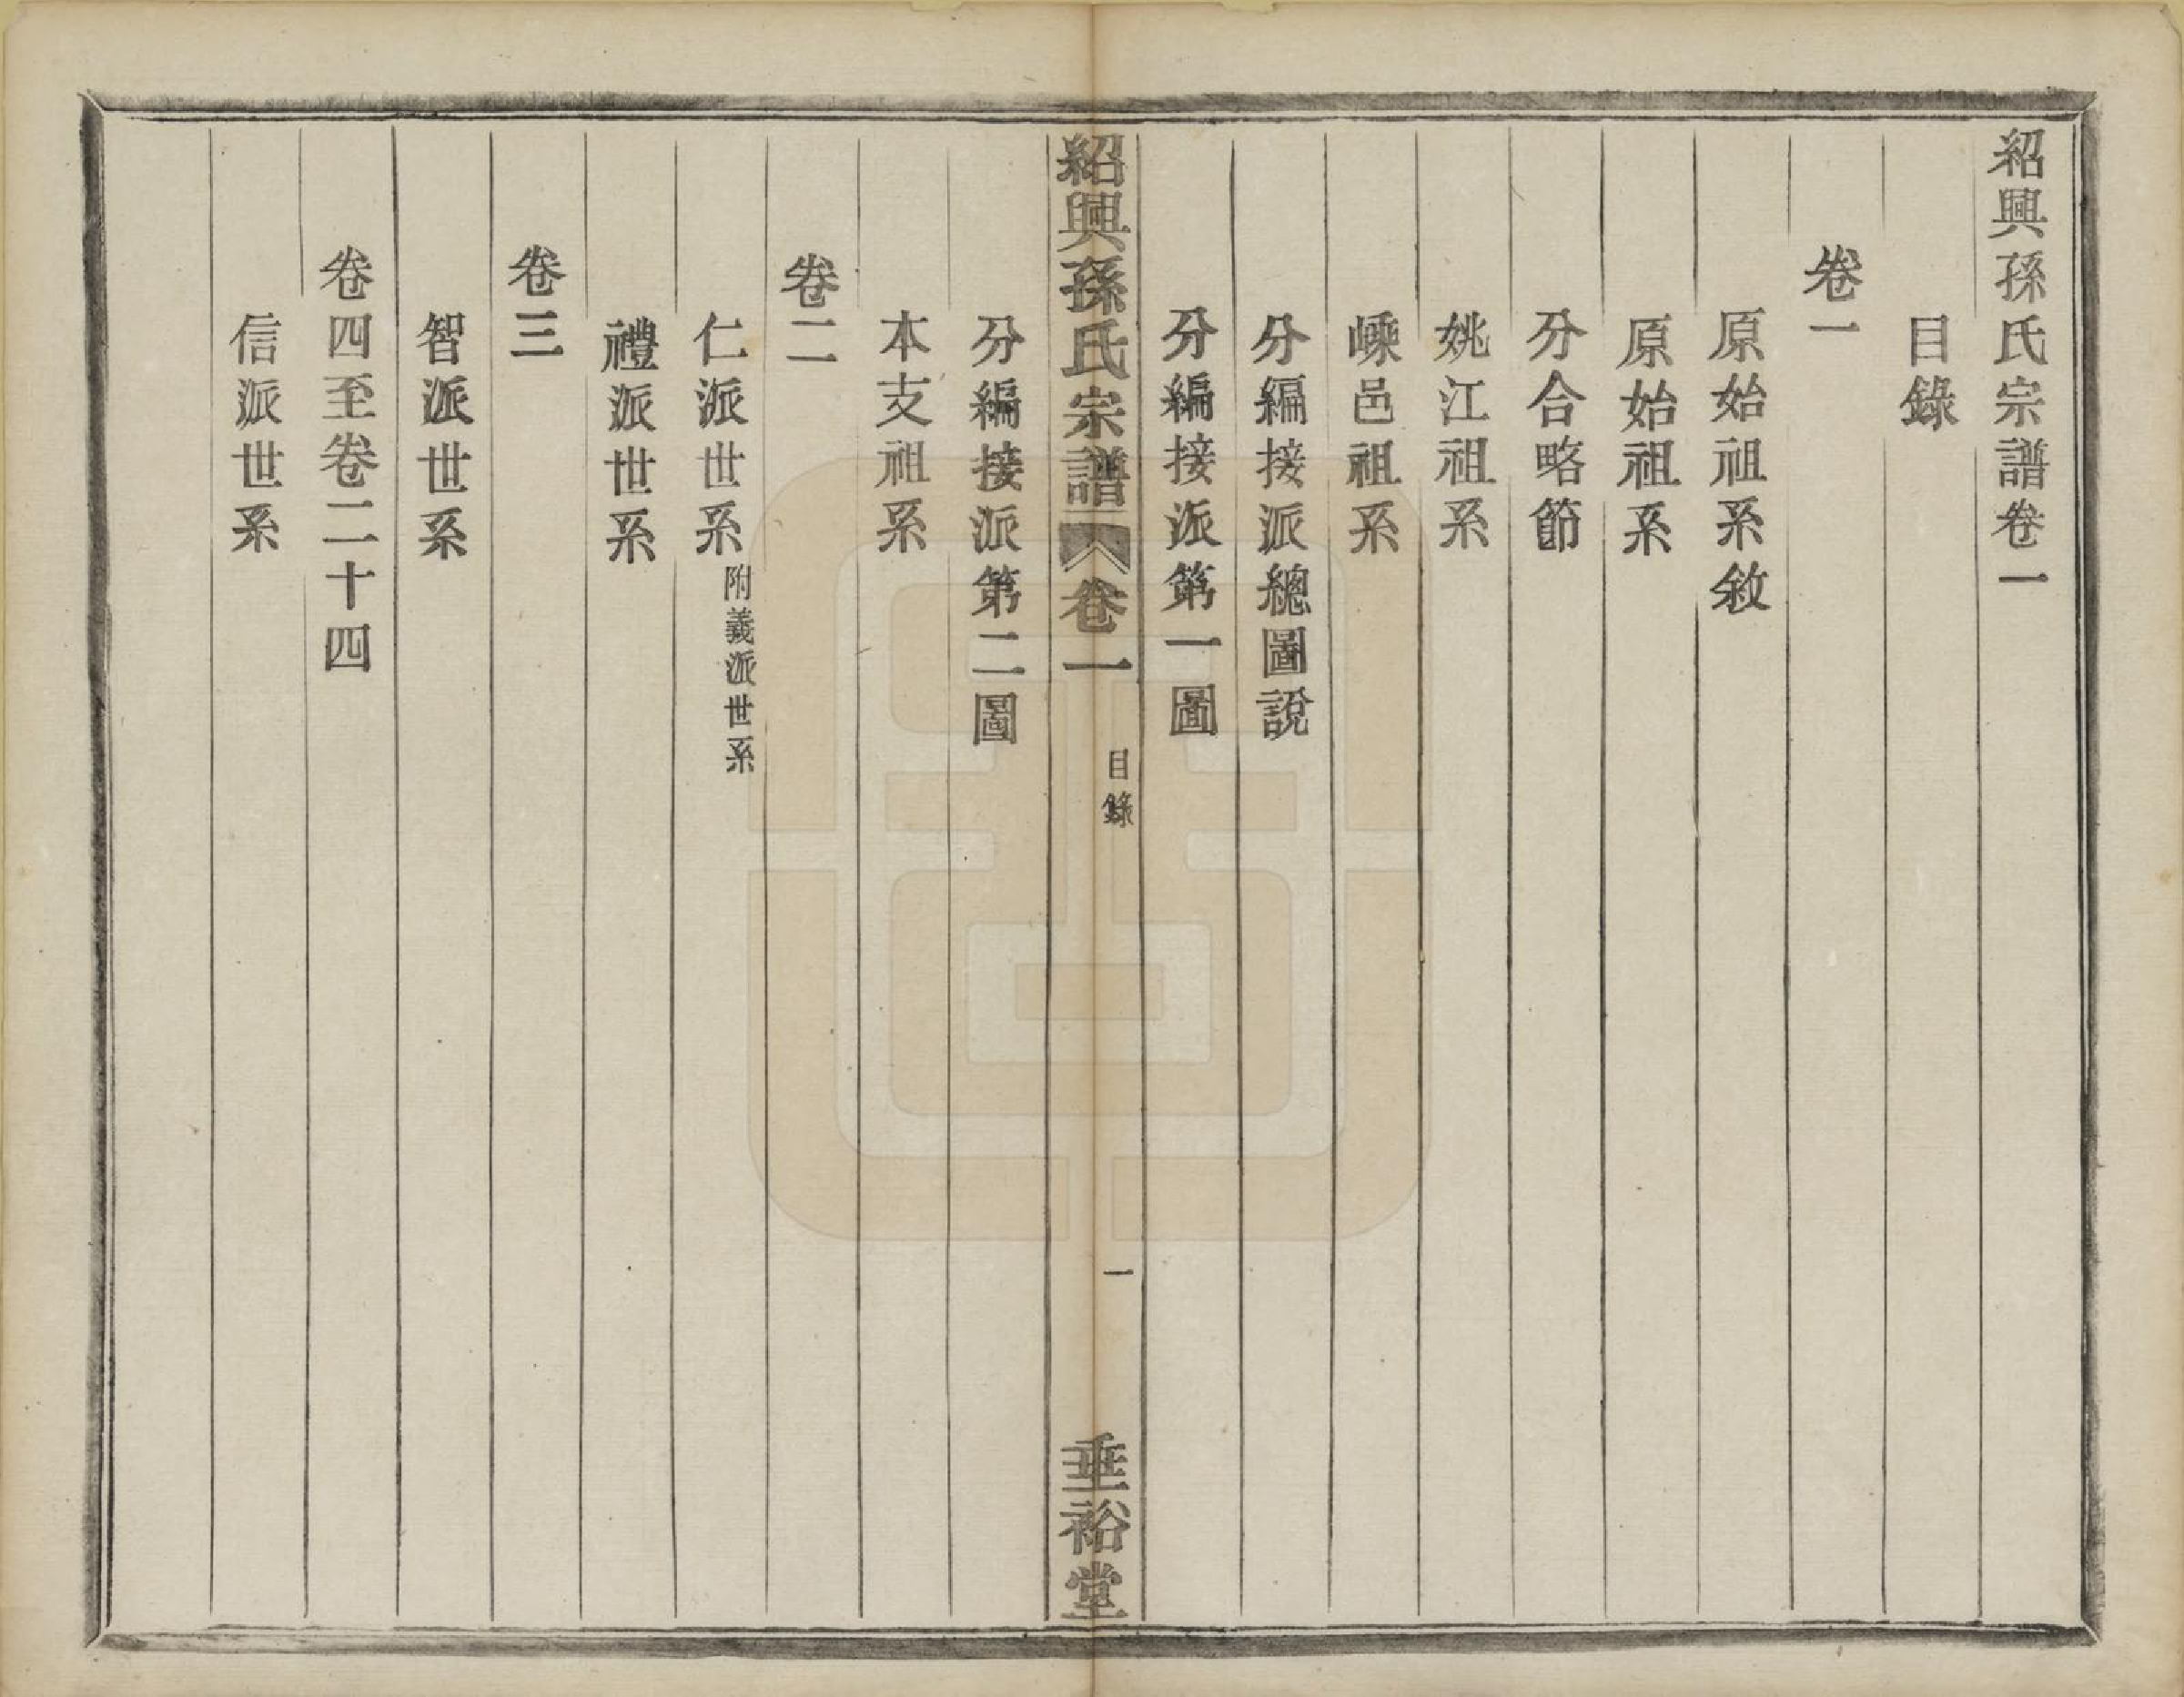 紹興孫氏宗譜卷一
目錄
卷一
原始祖系敘
原始祖系
分合略節
姚江祖系
嵊邑祖系
分編接派總圖說
分編接派第一圖
紹興孫氏宗譜 卷一 目錄 一 垂裕堂
分編接派第二圖
本支祖系
卷二
仁派世系附義派世系
禮派世系
卷三
智派世系
卷四至卷二十四
信派世系